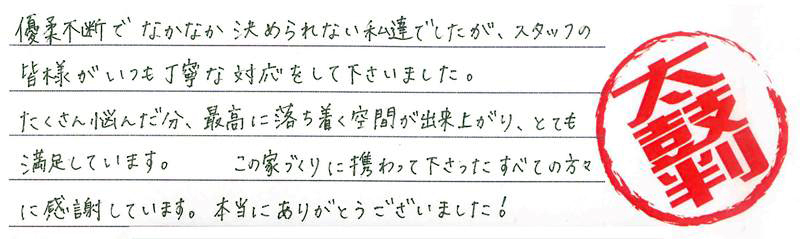 優柔不断で なかなか 決められない私達でしたが、スタッフの
皆様がいつも丁寧な対応をして下さいました。
たくさん悩んだ分、最高に落ち着く空間が出来上がり、とても
満足しています。 この家づくりに携わって下さったすべての方々
に感謝しています。本当にありがとうございました!
太鼓判